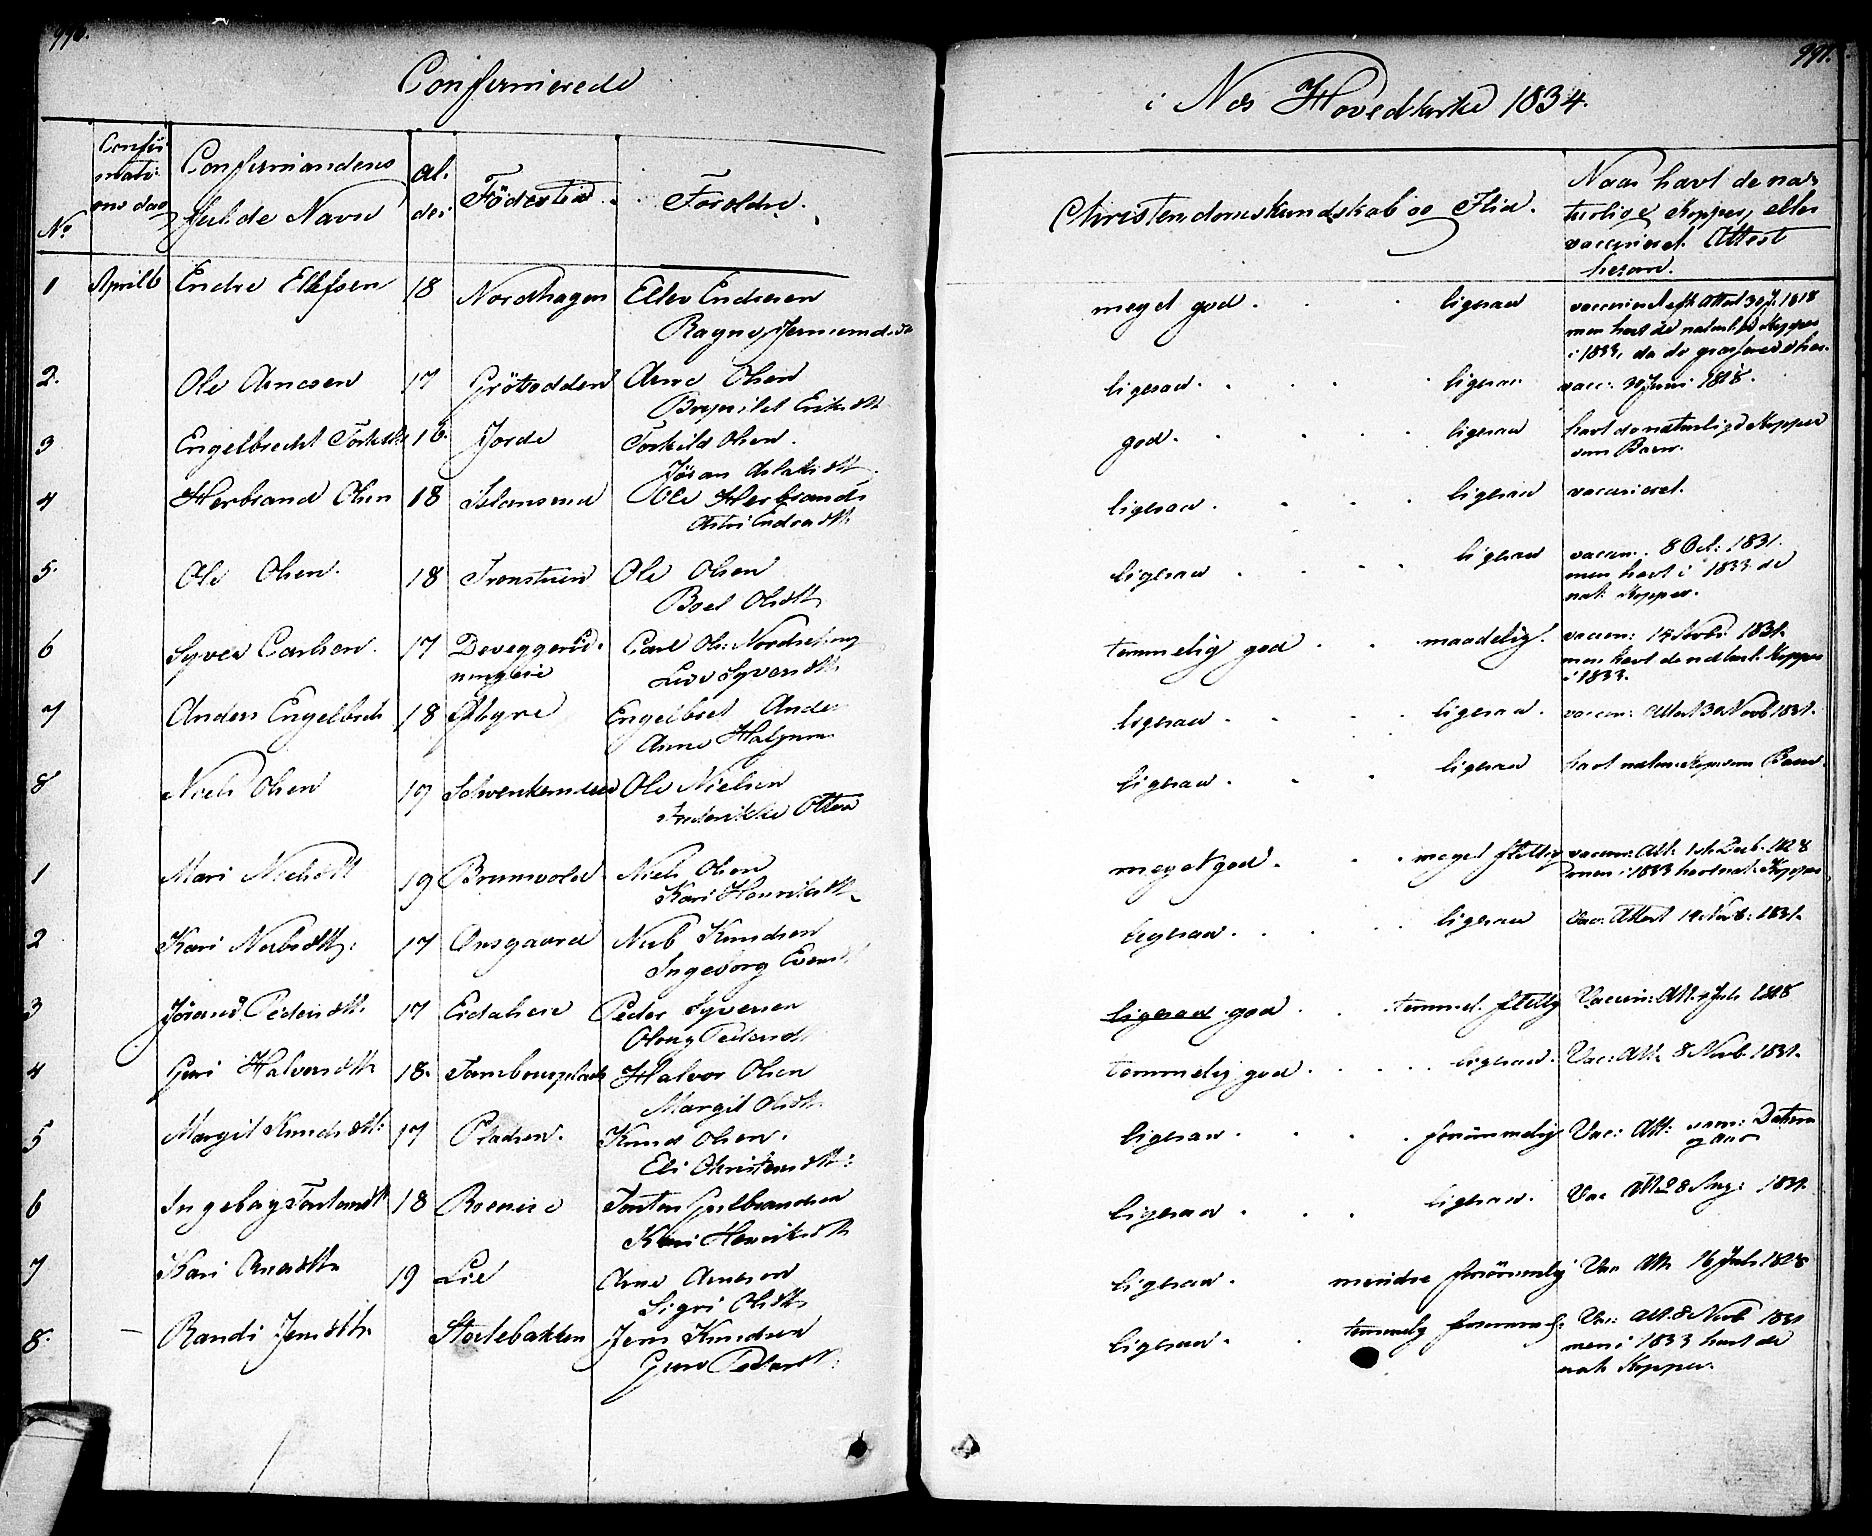 990.
Confirmerede
No
Confir-
mati-
ons dag
Confirmandens
fulde Navn
Al-
der
Födested
Forældre.
1 April 6 Endre Ellefsen 18 Nordhagen Ellev Endresen
Ragne
2. Ole Arnesen 17 Grötodden Arne Olsen
Erichsdtr
3 Engelbrecht 16. Jorde Torkild Olsen.
Jöran Aslaksdtr
4 Herbrand Olsen 18 Ole Herbrands
Astri Endresdtr
5. Ole Olsen. 18 Ole Olsen
Boel Olsdtr
6 Syver Carlsen. 17 Carl Ols:
Live Syversdtr
7 Anders Engelbrets 18 Engelbret Anders
Anne
8 Niels Olsen 19 Ole Nielsen
Frederikke Otters
1 Mari Nielsdtr 19 Brunvold Niels Olsen
Kari Henriksdtr
2 Kari 17 Onsgaard Knudsen
Ingeborg Evens
3 Jörand Pedersdtr. 17 Peder Syversen
Pedersdtr
4 Guri Halvorsdtr 18. Halvor Olsen
Margit Olsdtr
5 Margit Knudsdtr: 17 Pladsen. Knud Olsen.
Eli Christensdtr:
6 Ingeborg 18 Gulbrandsen
Kari Henriksdtr
7 Kari Arnesdtr 19 Lie Arne Arnesen
Sigri Olsdtr
8. Randi Jensdtr Stölebakken Jens Knudsen
Guro Pedersdtr:
991.
i Næs Hovedkirke 1834.
Christendomskundskab og Flid.
Naar havt de na-
turlige Kopper, eller
vaccineret. Attest
herom.
meget god. ligesaa vaccineret eft. Attest 30 J. 1818
men havt de naturl. Kopper
i 1833, da de grasserede her.
ligesaa. ligesaa vacc: 30 Juni 1818.
god. ligesaa havt de naturlige Kopper
som Barn.
ligesaa. ligesaa vaccineret.
ligesaa ligesaa vaccin: 8 Oct: 1831.
men havt i 1833 de
nat: Kopper.
temmelig god maadelig. vaccin: 14 Novbr 1831.
men havt de naturl. Kopper
i 1833.
ligesaa ligesaa. vaccin: Attest 30 Novb 1831.
ligesaa. ligesaa havt natur. Kop. som Barn.
meget god. meget flittig vaccin: Att: 1828
men i 1833 havt nat. Kopper
ligesaa. ligesaa Vac: Attest 14 Novb: 1831.
ligesaa god temmel. flittig Vaccin: Att. Juli 1818
temmelig god ligesaa. Vac: Att. 8 Novb 1831.
ligesaa forsömmelig Vac: Att: uden: Datum
og Aar
ligesaa ligesaa. Vac Att 28 Aug: 1831.
ligesaa. mindre forsömmelig Vac Att. 16 Juli 1828
ligesaa. temmelig forsömmel: Vac: Att. 8 Novb 1831
men i 1833 havt de
nat: Kopper.